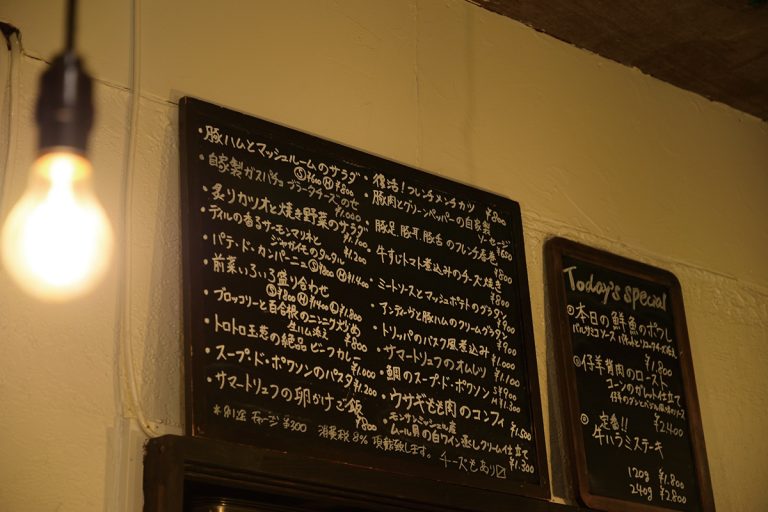 ・豚ハムとマッシュルームのサラダ
Ⓢ¥600 Ⓜ¥800
・自家製ガスパチョ ブラータチーズのせ
¥1.000
・炙りカツオと焼き野菜のサラダ
¥1.700
・ディルの香るサーモンマリネと
ジャガイモのタルタル ¥1.200
・パテ・ド・カンパーニュ Ⓢ¥800 Ⓜ¥1.400
・前菜いろいろ盛り合わせ
Ⓢ¥800 Ⓜ¥1.400 Ⓛ¥1.800
・ブロッコリーと百合根のニンニク炒め
生ハム添え ¥800
・トロトロ玉葱の絶品ビーフカレー
¥1.000
・スープ・ド・ポワソンのパスタ
¥1.200
・サマートリュフの卵かけご飯
¥800
・復活！フレンチメンチカツ ¥800
・豚肉とグリーンペッパーの自家製
ソーセージ ¥650
・豚足、豚耳、豚舌のフレンチ春巻
¥800
・牛すじトマト煮込みのチーズ焼き
¥800
・ミートソースとマッシュポテトのグラタン
¥800
・アンディーヴと豚ハムのクリームグラタン
¥900
・トリッパのバスク風煮込み ¥1.000
・サマートリュフのオムレツ ¥1.100
・鯛のスープ・ド・ポワソン S¥900
M¥1.300
・ウサギもも肉のコンフィ
¥1.500
・モンサンミッシェル産
ムール貝の白ワイン蒸しクリーム仕立て
¥1.300
＊別途 チャージ ¥300 消費税 8% 頂戴致します。
チーズもあり〼
Today's special
◎本日の鮮魚のポワレ
バルサミコソース
¥1.800
◎仔羊背肉のロースト
仕立て
¥2.400
◎定番!!
牛ハラミステーキ
120g ¥1.800
240g ¥2.800